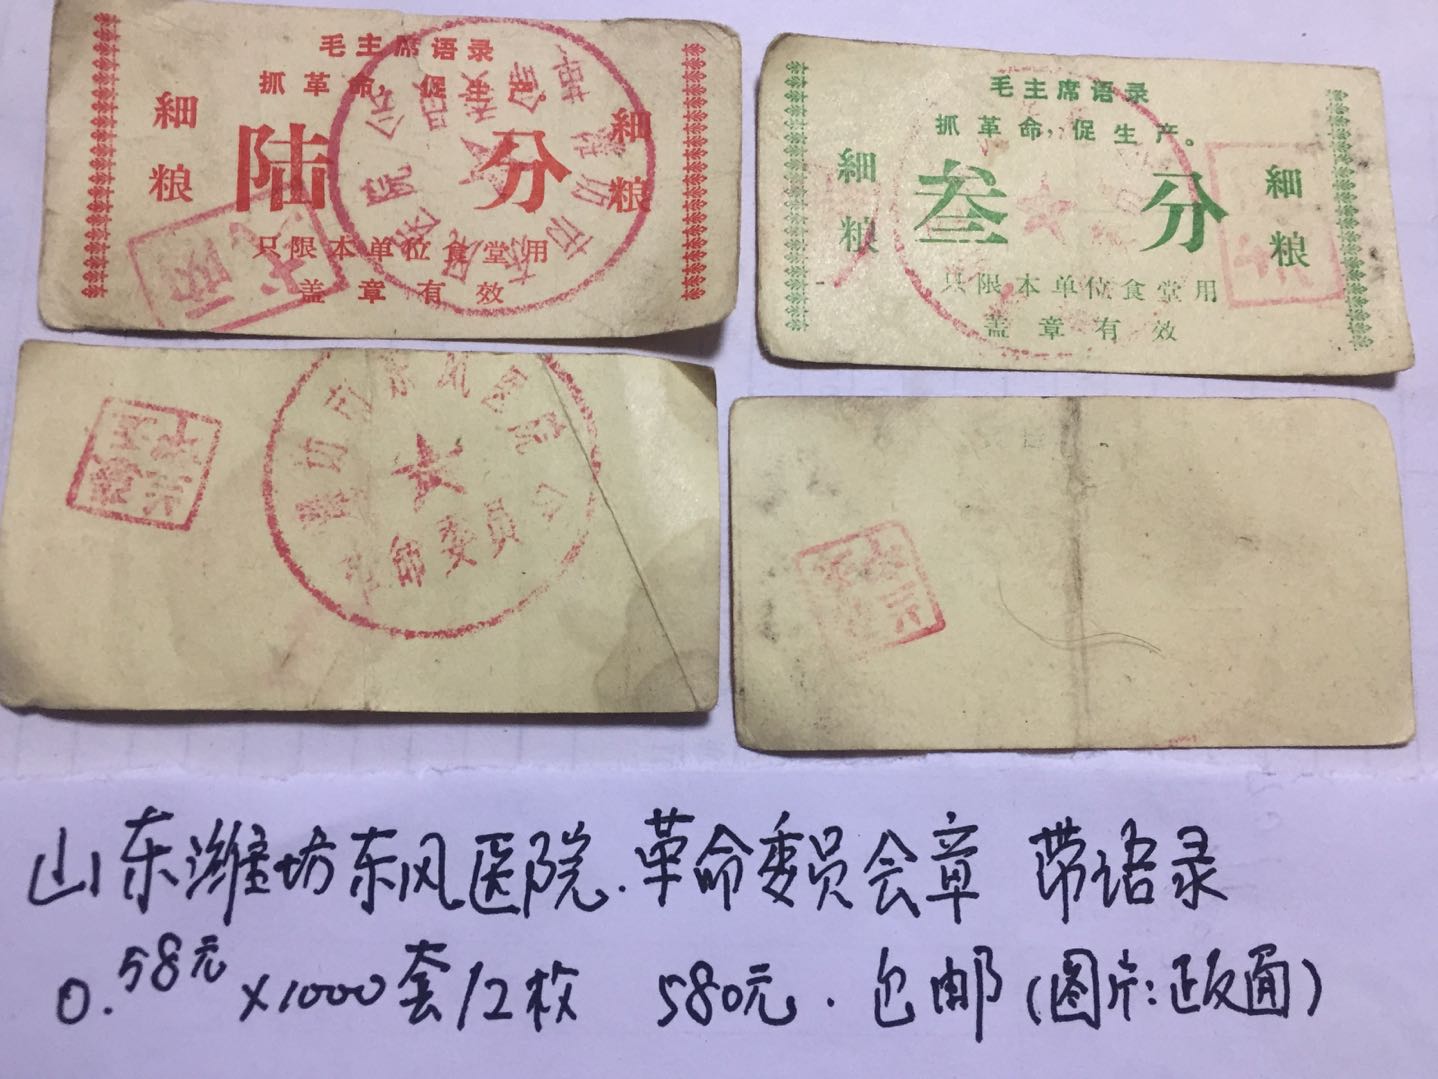 毛主席语录
抓革命，促生产
細粮
陆分
細粮
只限本单位食堂用
盖章有效
毛主席语录
抓革命，促生产。
細粮
叁分
細粮
只限本单位食堂用
盖章有效
潍坊市东风医院
革命委员会
山东潍坊东风医院.革命委员会章 带语录
0.58元×1000套/2枚 580元.包邮(图片:正反面)